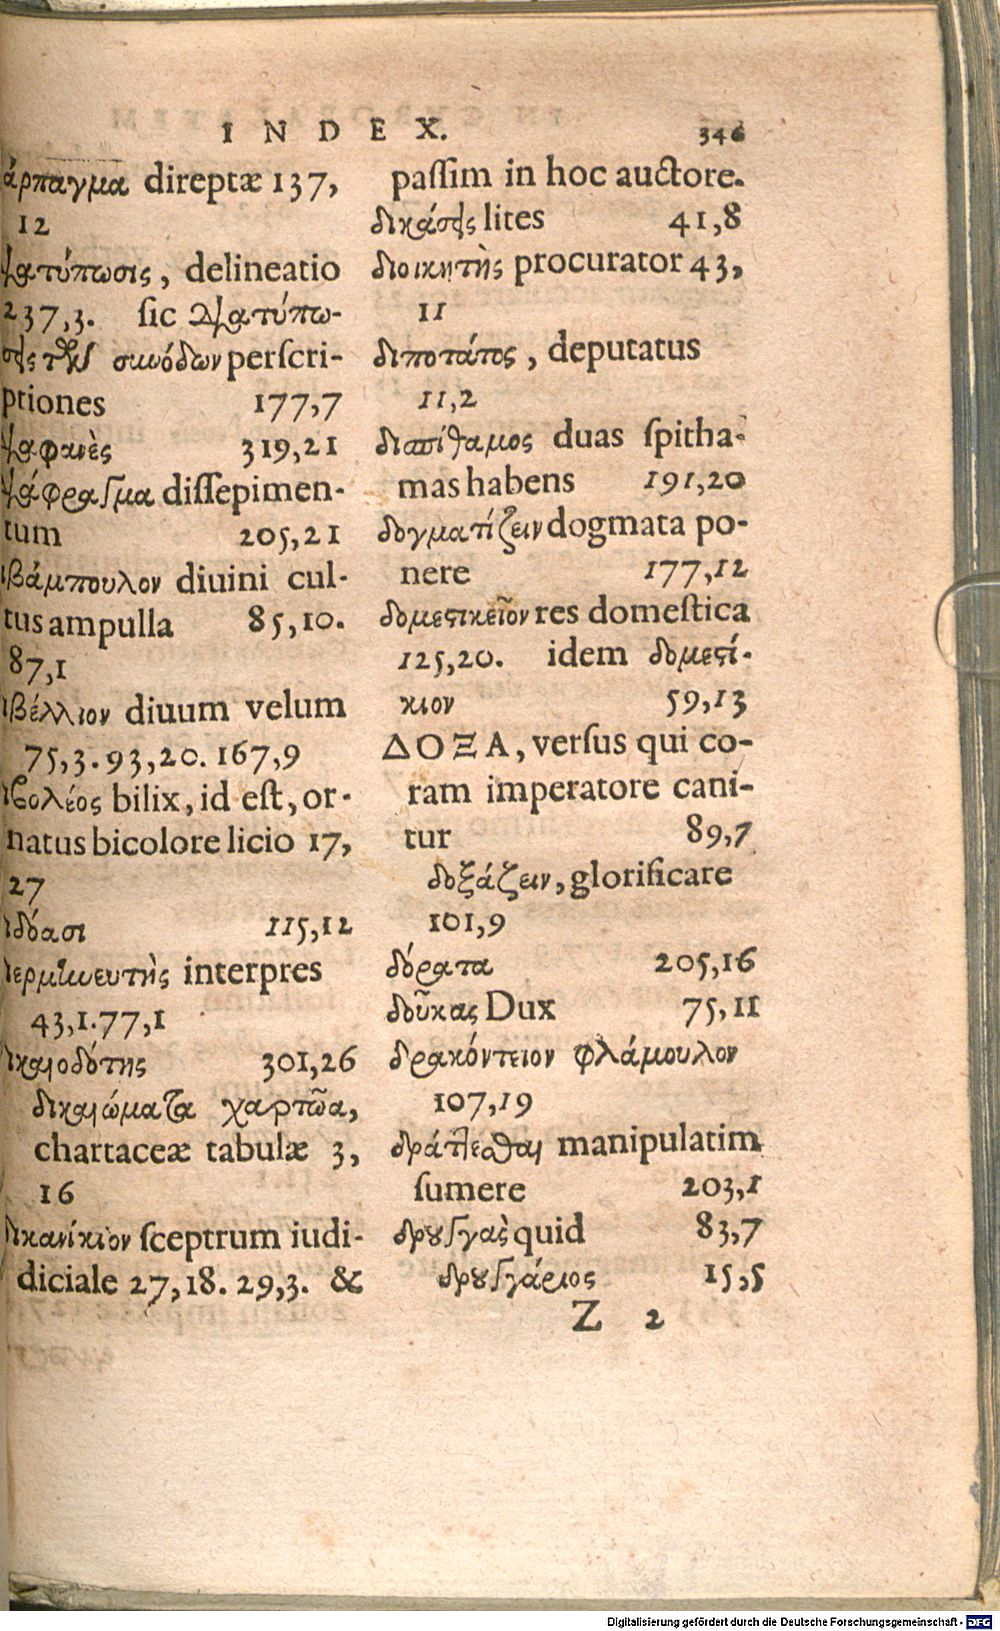 INDEX. 346
άρπαγμα direptæ 137,
12
ατύπωσις, delineatio
237,3. sic Διατύπω-
σεις τῶν συνόδων perscri-
ptiones 177,7
αφανὲς 319,21
άφρασμα dissepimen-
tum 205,21
ιβάμπουλον diuini cul-
tus ampulla 85,10.
87,1
ιβέλλιον diuum velum
75,3. 93,20. 167,9
ιβολέος bilix, id est, or-
natus bicolore licio 17,
27
ιδόασι 115,12
ιερμηνευτὴς interpres
43,1. 77,1
ικαιοδότης 301,26
δικαιώματα χαρτῶα,
chartaceæ tabulæ 3,
16
δικανίκιον sceptrum iudi-
diciale 27,18. 29,3. &
passim in hoc auctore.
δικάσεις lites 41,8
διοικητὴς procurator 43,
11
διποτάτος, deputatus
11,2
δισπίθαμος duas spitha-
mas habens 191,20
δογματίζειν dogmata po-
nere 177,12
δομεστικεῖον res domestica
125,20. idem δομεστί-
κιον 59,13
ΔΟΞΑ, versus qui co-
ram imperatore cani-
tur 89,7
δοξάζειν, glorificare
101,9
δόρατα 205,16
δοῦκας Dux 75,11
δρακόντειον φλάμουλον
107,19
δράττεσθαι manipulatim
sumere 203,1
δρουγγας quid 83,7
δρουγγάριος 15,5
Z 2
Digitalisierung gefördert durch die Deutsche Forschungsgemeinschaft - DFG